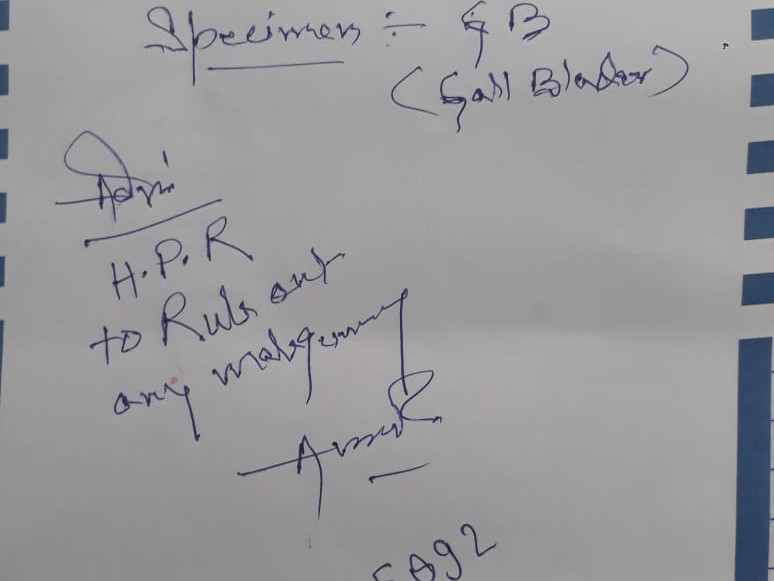 Specimen :- GB
(Gall Blader)
Adv:
H.P.R
to Rule out
any malignancy